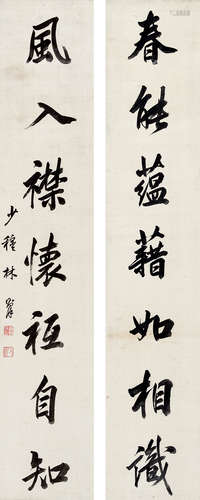 春能蕴藉如相識
風入襟懷祇自知
少穆林